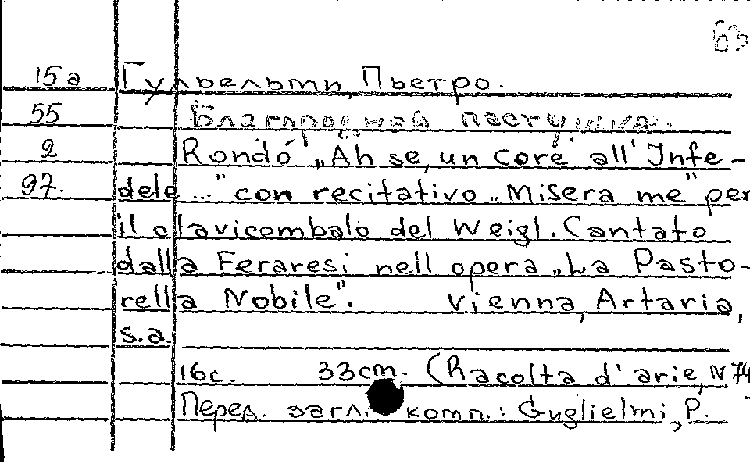 63
15а Гульельми, Пьетро.
55 Благородная пастушка.
2 Rondó "Ah se, un core all' Infe-
97. dele..." con recitativo "Misera me" per
il clavicembalo del Weigl. Cantato
dalla Feraresi nell opera "La Pasto-
rella Nobile". Vienna, Artaria,
s.a.
16с. 33cm. (Racolta d'arie, N 74
Перед. загл. комп.: Guglielmi, P.